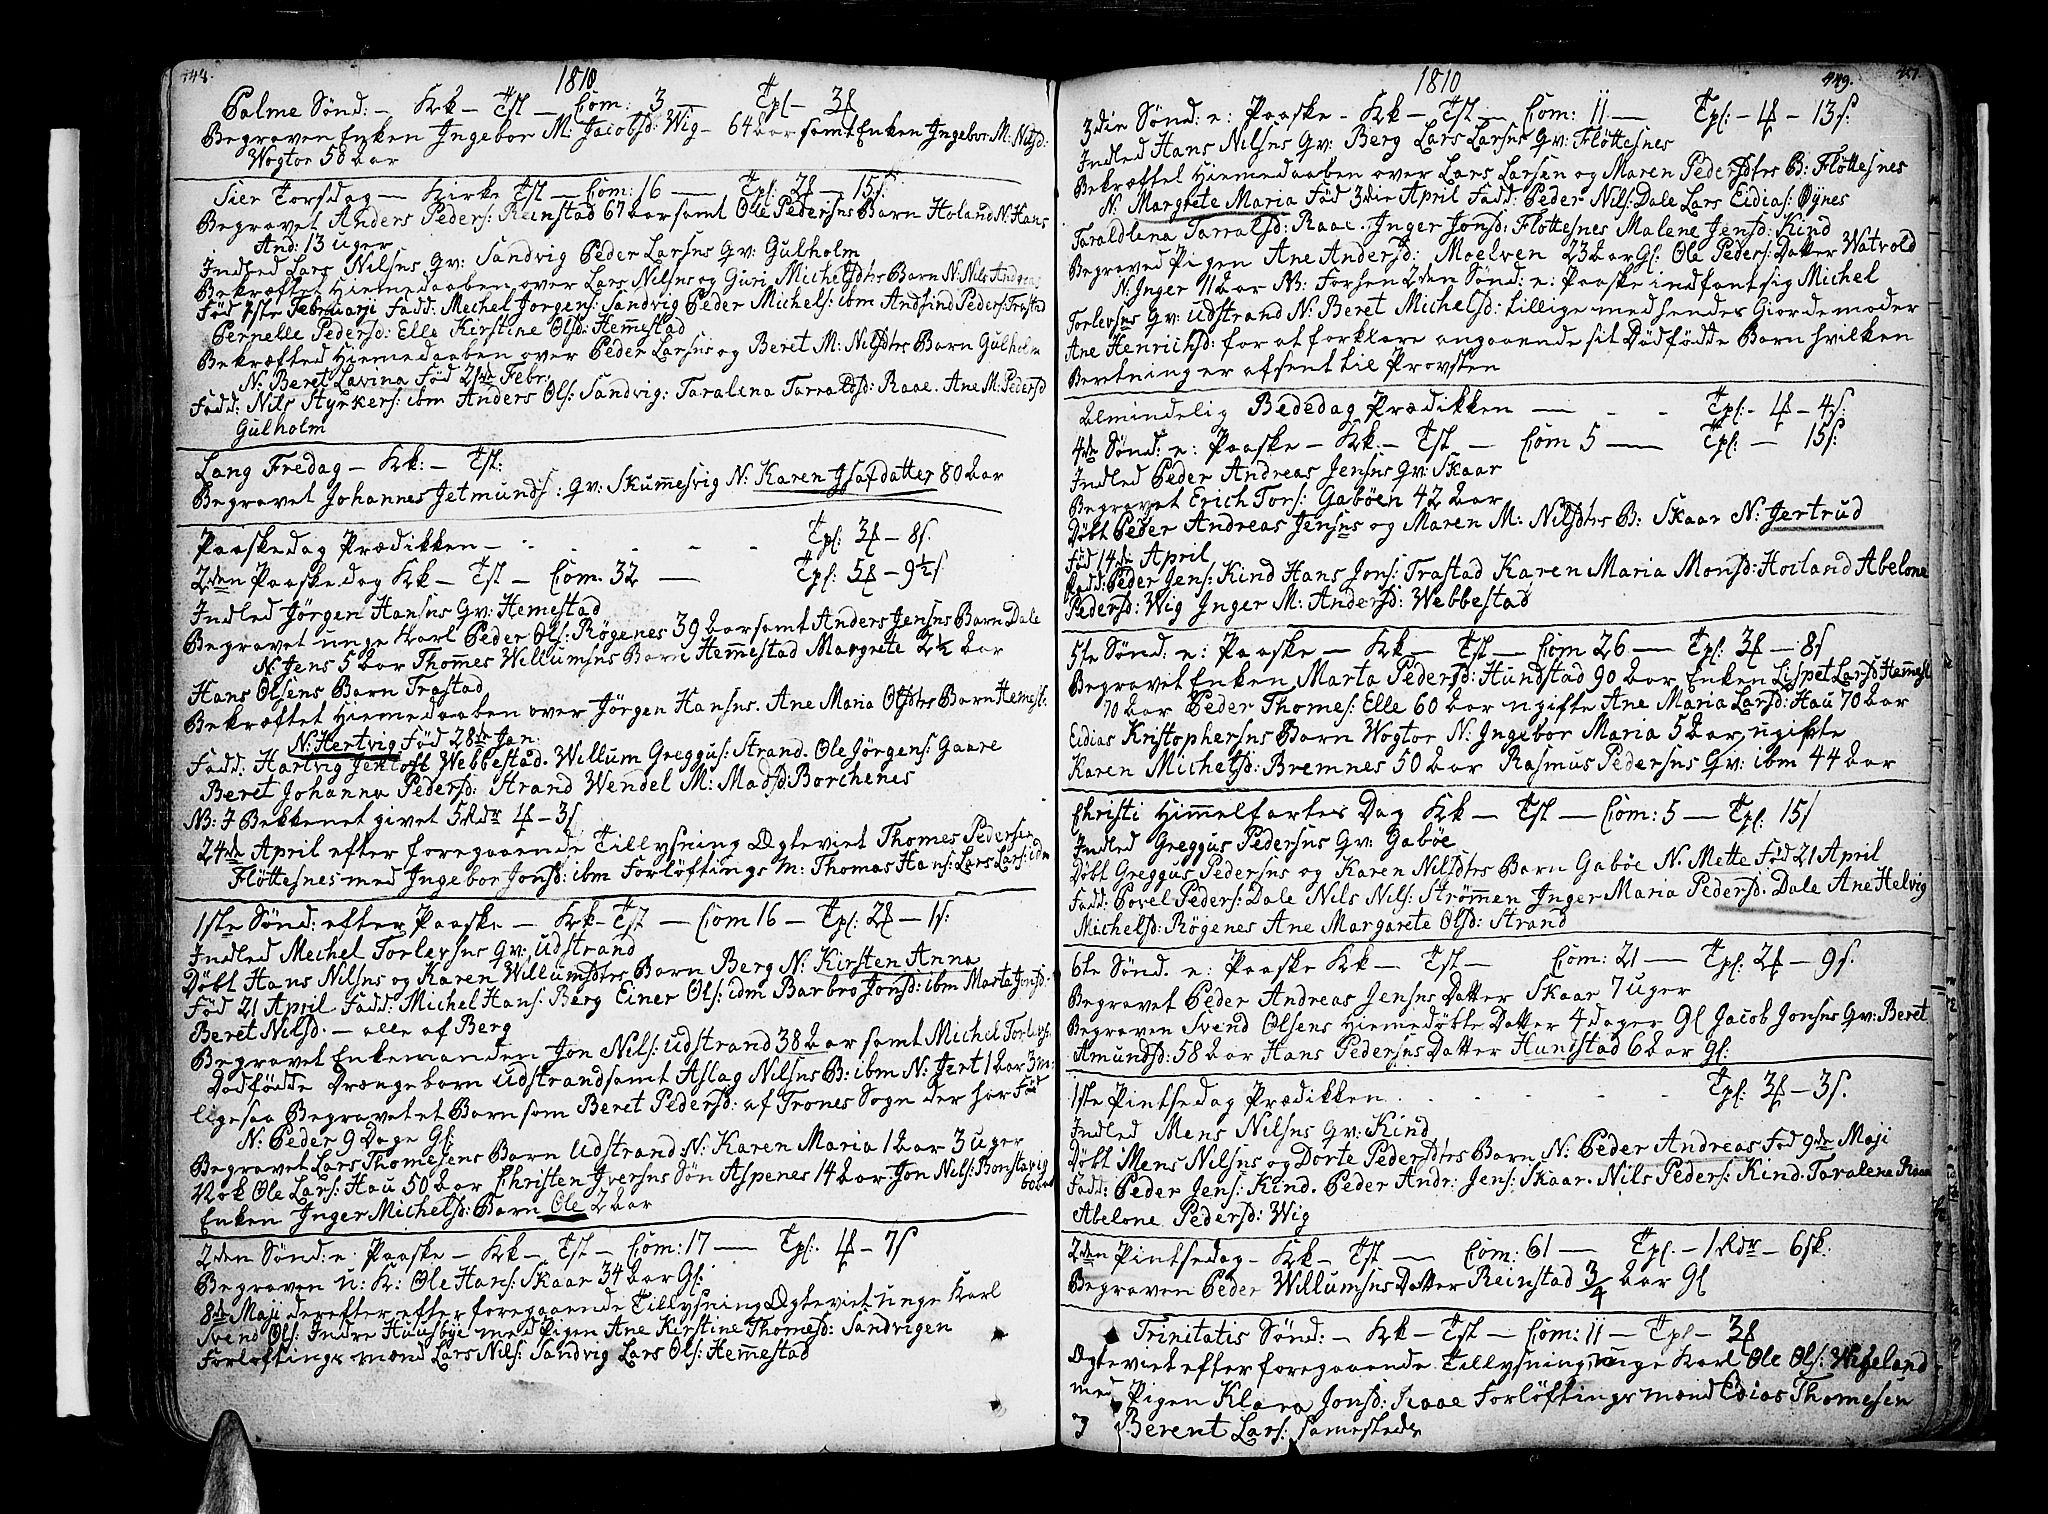 448.
1810
Palme Sønd: – Kk – Tst – Com: 3 – Tpl – 3f
Begraven Enken Ingebor M: Jacobsd: Wig – 64 aar samt Enken Ingebor M: Nilsd:
Wogtor 58 aar
Sier Torsdag – Kirke Tst – Com: 16 – Tpl: 2f – 15s
Begravet Anders Peders: Reinstad 67 aar samt Ole Pedersns Barn Holand N: Hans
And: 13 uger
Indled Lars Nilsns Qv: Sandvig Peder Larsns Qv: Gulholm
Bekræftet Hiemedaaben over Lars Nilsns og Guri Michelsdtrs Barn N: Nils Andreas
Fød 1ste Februarii Fadd: Mechel Jørgens: Sandvig Peder Michels: ibm Andfind Peders: Trastad
Pernelle Pedersd: Elle Kirstine Olsd: Hemestad
Bekræfted Hiemedaaben over Peder Larsns og Beret M: Nilsdtrs Barn Gulholm
N: Beret Lavina Fød 21de Febr:
Fadd: Nils Styrkers: ibm Anders Ols: Sandvig: Taralena Tarraldsd: Raae. Ane M: Pedersd
Gulholm
Lang Fredag – Kk: – Tst:
Begravet Johannes Jetmunds: Qv: Skumesvig N: Karen Isafdatter 80 aar
Paaskedag Prædikken – Tpl: 3f – 8s.
2den Paaskedag Kk – Tst – Com. 32 – Tpl: 5f – 9½s
Indled Jørgen Hansns Qv: Hemestad
Begravet unge Karl Peder Ols: Røgenes 39 aar samt Anders Jensns Barn Dale
N: Jens 5 aar Thomes Willumsns Barn Hemestad Margrete 2½ aar
Hans Olsens Barn Trastad
Bekræftet Hiemedaaben over Jørgen Hansns. Ane Maria Olsdtrs Barn Hemest:
N: Hertvig Fød 28de Jan:
Fadd: Hartvig Jentoft Webbestad. Willum Greggus: Strand. Ole Jørgens: Gaare
Beret Johanna Pedersd: Strand Wendel M: Madsd: Borchenes
NB: I Bekkenet givet 5 Rdr 4f – 3s
24de April efter foregaaende Tillysning Ægteviet Thomes Pedersen
Fløttesnes med Ingebor Jonsd: ibm Forløftings M: Thomas Hans: Lars Lars: idm
1ste Sønd: efter Paaske – Kk – Tst – Com 16 – Tpl: 2f – 1s:
Indled Mechel Torlevsns Qv: udstrand
Døbt Hans Nilsns og Karen Willumsdtrs Barn Berg N: Kirsten Anna
Fød 21 April Fadd: Michel Hans: Berg Einer Ols: idm Barbro Jonsd: ibm Marta Jonsd:
Beret Nilsd. – alle af Berg
Begravet Enkemanden Jon Nils: udstrand 38 aar samt Michel Torlevs:
Dødfødde Drængebarn udstrand samt Aslag Nilsns B: ibm N: Jert 1 aar 3 m:
ligesaa Begravet et Barn som Beret Pedersd: af Trones Sogn der har Fød
N: Peder 9 Dage Gl:
Begravet Lars Thomesens Barn Udstrand: N: Karen Maria 1 aar 3 uger
Nok Ole Lars: Hau 50 aar Christen Iversns Søn Aspenes 14 aar. Jon Nils: Bonstavig
60 aar
Enken Inger Michelsd: Barn Ole 2 aar
2den Sønd: e: Paaske – Kk – Tst – Com: 17 – Tpl: 4f – 7s
Begraven u: K: Ole Hans: Skaar 34 aar Gl:
8de Maji derefter efter foregaaende Tillysning Ægteviet unge Karl
Svend Ols: Indre Huusbye med Pigen Ane Kirstine Thomesd: Sandvigen
Forløftings mænd Lars Nils: Sandvig Lars Ols: Hemestad
1810
449.
3die Sønd: e: Paaske – Kk – Tst – Com: 11 – Tpl: – 4f – 13s:
Indled Hans Nilsns Qv: Berg Lars Larsns Qv: Fløttesnes
Bekræftet Hiemedaaben over Lars Larsen og Maren Pedersdtrs B: Fløttesnes
N: Margrete Maria Fød 3die April Fadd: Peder Nils: Dale Lars Eidias: Øynes
Taraldlena Tarralsd: Raae. Inger Jonsd: Fløttesnes Malene Jensd: Kind
Begraved Pigen Ane Andersd: Moelven 23 aar Gl: Ole Peders: Datter Watvold
N: Inger 11 aar NB: Forsen 2den Sønd: e: Paaske indfant sig Michel
Torlevsns Qv: udstrand N: Beret Michelsd: tillige med hendes Giordemoder
Ane Henrichsd: for at forklare angaaende sit Dødfødde Barn hvilken
Beretning er afsent til Provsten
Almindelig Bededag Prædikken – Tpl: – 4f – 4s:
4de Sønd: e: Paaske – Kk. – Tst – Com 5 – Tpl: – 15s:
Indled Peder Andreas Jensns Qv: Skaar
Begravet Erich Tors: Gabøen 42 aar
Døbt Peder Andreas Jensns og Maren M: Nilsdtrs B: Skaar N: Jertrud
Fød 14de April
Fadd: Peder Jens: Kind Hans Jons: Trastad Karen Maria Monsd: Hoiland Abelone
Pedersd: Wig Inger M: Andersd: Webbestad
5te Sønd: e: Paaske – Kk – Tst – Com 26 – Tpl: 3f – 8s
Begravet Enken Marta Pedersd: Hundstad 90 aar Enken Lispet Larsd Hemest
70 aar Peder Thomes: Elle 60 aar ugifte Ane Maria Larsd: Hau 70 aar
Eidias Kristophersns Barn Wogtor N: Ingebor Maria 5 aar, ugifte
Karen Michelsd: Bremnes 50 aar Rasmus Pedersns Qv: ibm 44 aar
Christi Himmelfartes Dag Kk – Tst – Com: 5 – Tpl: 15s
Indled Greggus Pedersns Qv: Gabøe
Døbt Greggus Pedersns og Karen Nilsdtrs Barn Gabøe N: Mette Fød 21 April
Fadd: Povel Peders: Dale Nils Nils: Strømen Inger Maria Pedersd: Dale Ane Helvig
Michelsd: Røgenes Ane Margarete Olsd: Strand
6te Sønd. e: Paaske Kk – Tst – Com: 21 – Tpl: 2f – 9s.
Begravet Peder Andreas Jensns Datter Skaar 7 uger
Begraven Svend Olsens Hiemedøbte Datter 4 dager Gl Jacob Jonsns Qv: Beret
Amundsd: 58 aar Hans Pedersns Datter Hundstad 6 aar Gl:
1ste Pintsedag Prædikken Tpl: 3f – 3s.
Indled Mens Nilsns Qv: Kind
Døbt Mens Nilsns og Dorte Pedersdtrs Barn N: Peder Andreas Fød 9de Maji
Fadd: Peder Jens: Kind. Peder Andr: Jens: Skaar. Nils Peders: Kind. Taralena Raae
Abelone Pedersd: Wig
2den Pintsedag – Kk – Tst – Com: 61 – Tpl. – 1 Rdr – 6sk:
Begraven Peder Willumsns Datter Reinstad 3/4 aar Gl
Trinitatis Sønd: – Kk – Tst – Com: 11 – Tpl – 3f
Ægteviet efter foregaaende Tillysning unge Karl Ole Ols: Wigeland
med Pigen Klara Jonsd: Raae Forløftings mænd Edias Thomesen
Berent Lars: samesteds